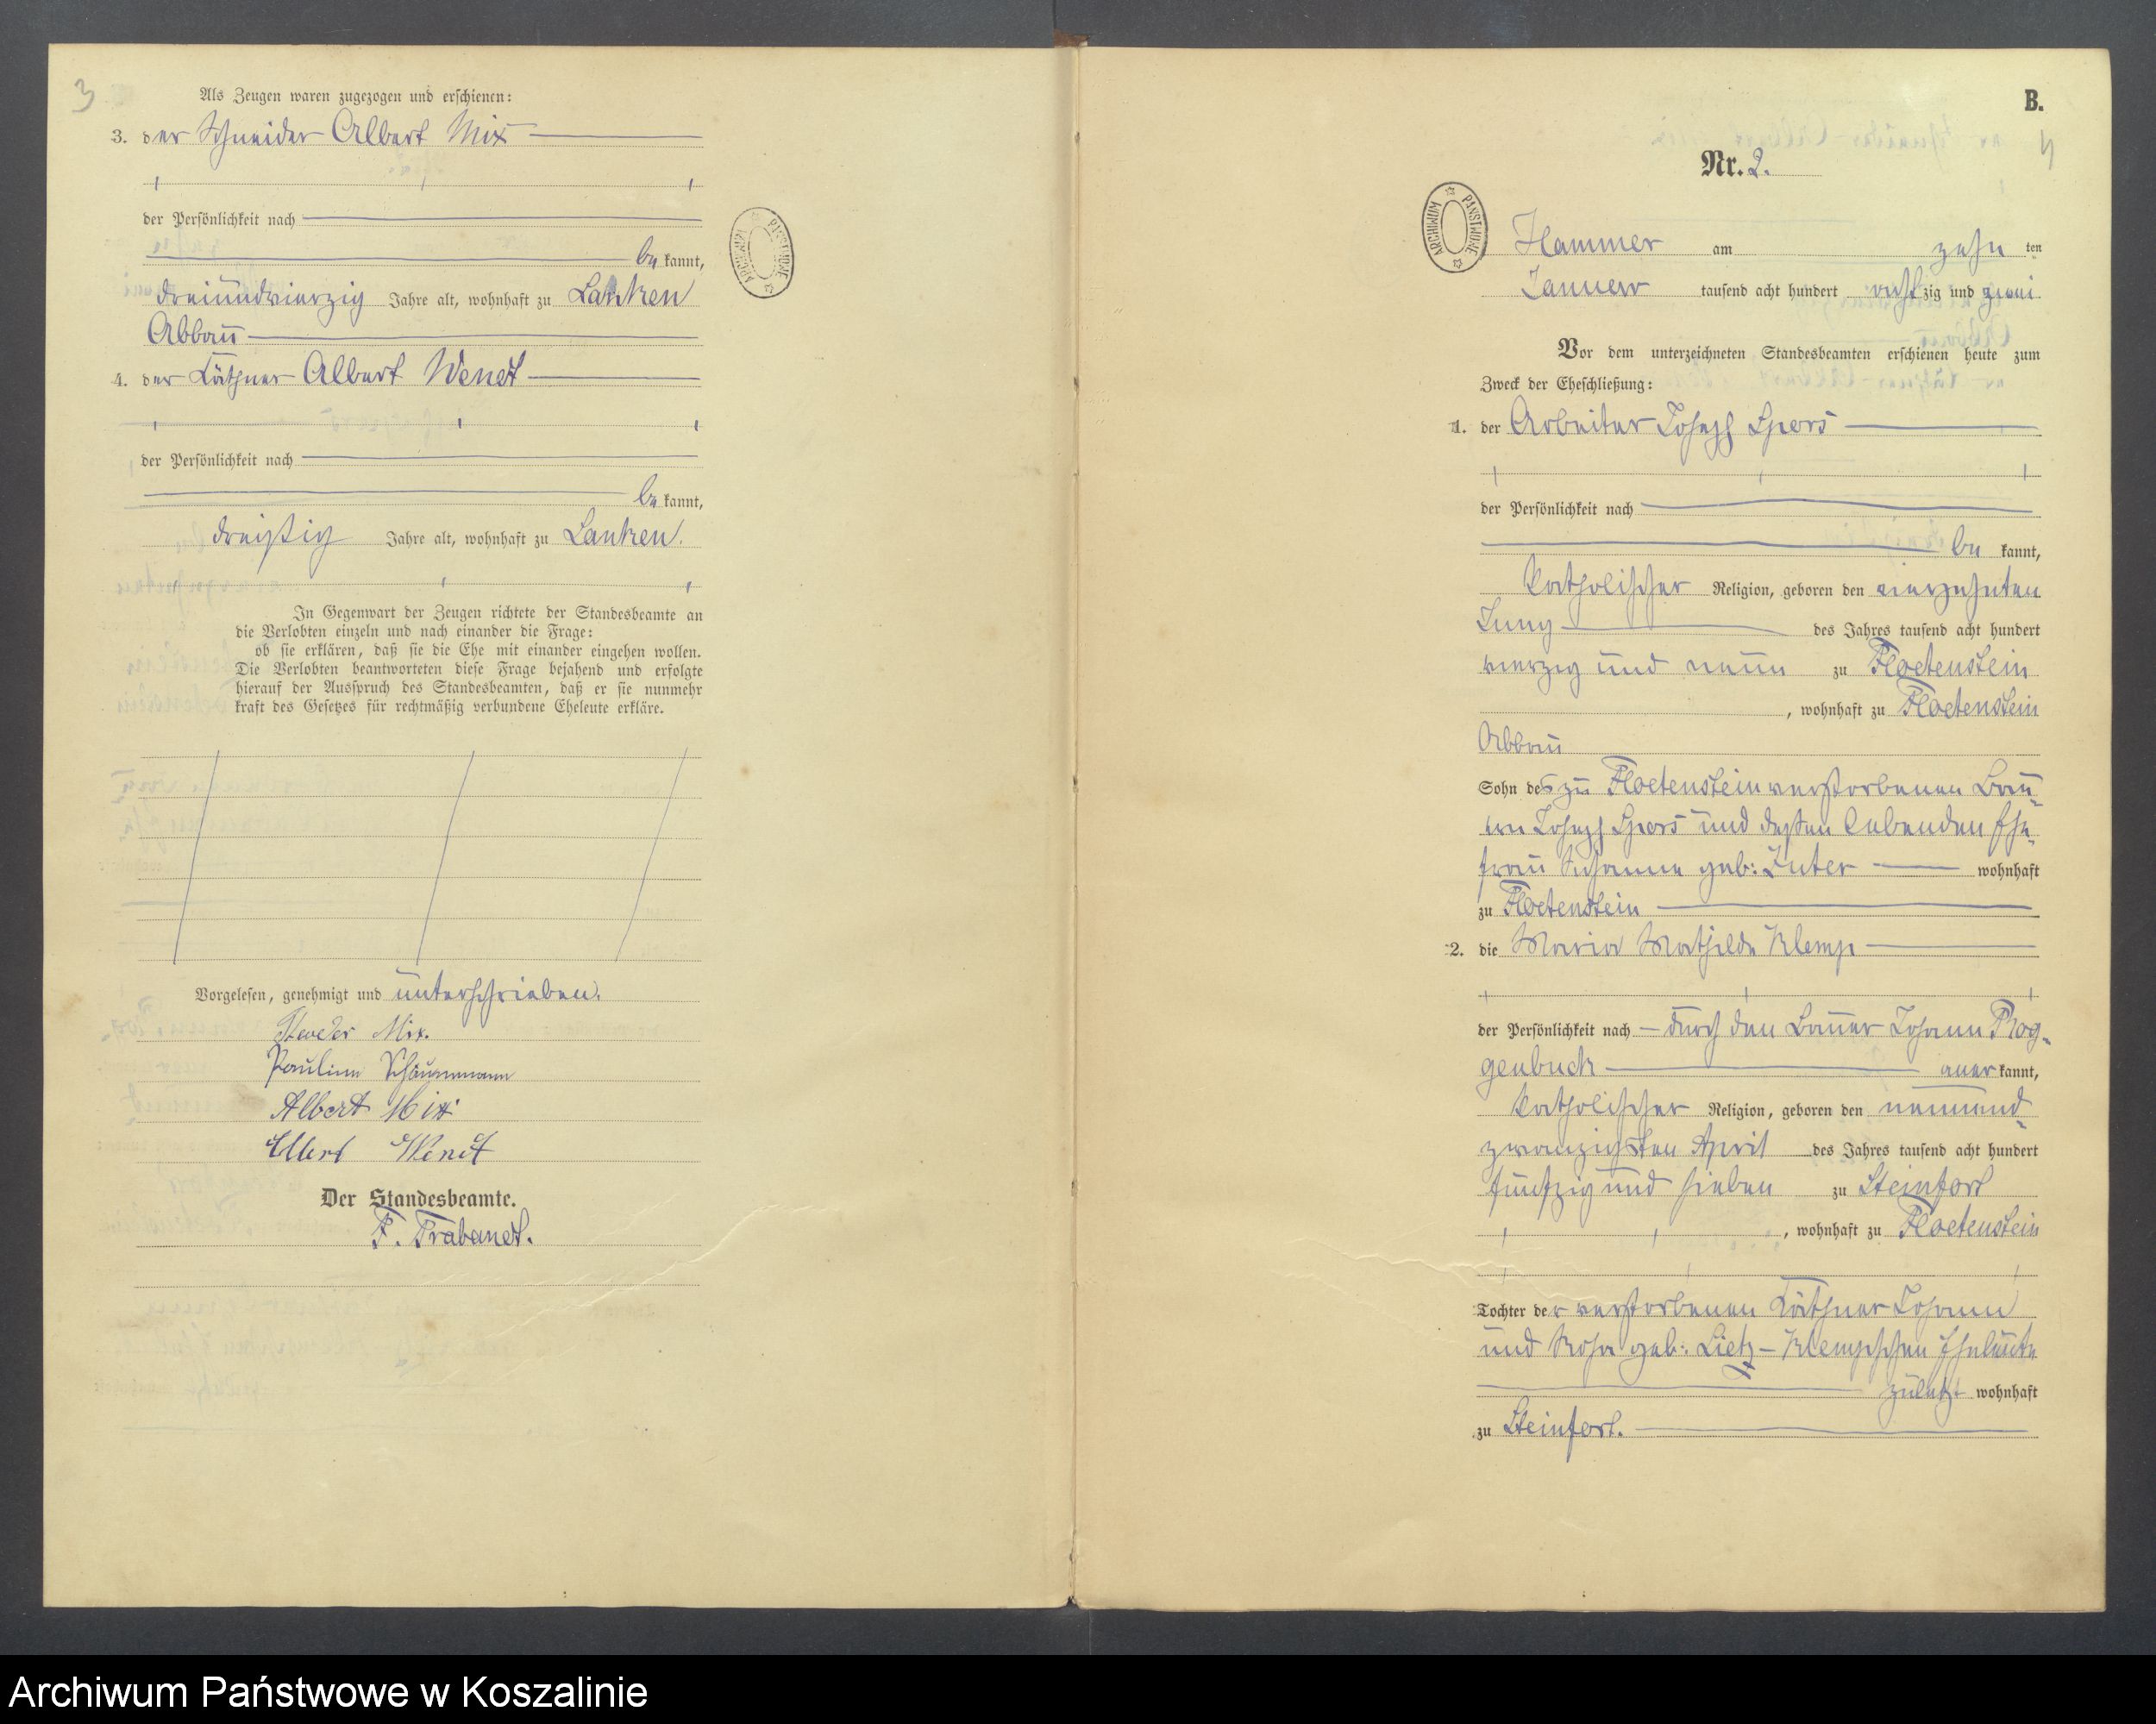 3
Als Zeugen waren zugezogen und erschienen:
3. der Schneider Albert Mix
der Persönlichkeit nach
be kannt,
dreiundvierzig Jahre alt, wohnhaft zu Lanken
Abbau
4. der Käthner Albert Wendt
der Persönlichkeit nach
be kannt,
dreißig Jahre alt, wohnhaft zu Lanken.
In Gegenwart der Zeugen richtete der Standesbeamte an
die Verlobten einzeln und nach einander die Frage:
ob sie erklären, daß sie die Ehe mit einander eingehen wollen.
Die Verlobten beantworteten diese Frage bejahend und erfolgte
hierauf der Ausspruch des Standesbeamten, daß er sie nunmehr
kraft des Gesetzes für rechtmäßig verbundene Eheleute erkläre.
Vorgelesen, genehmigt und unterschrieben.
Mix.
Pauline
Albert Mix
Albert Wendt
Der Standesbeamte.
F. Trabandt.
ARCHIWUM PAŃSTWOWE
B.
4
Nr. 2.
ARCHIWUM PAŃSTWOWE
Hammer am zehn ten
Januar tausend acht hundert acht zig und zwei
Vor dem unterzeichneten Standesbeamten erschienen heute zum
Zweck der Eheschließung:
1. der Arbeiter Joseph Spors
der Persönlichkeit nach
be kannt,
katholischer Religion, geboren den vierzehnten
Juny des Jahres tausend acht hundert
vierzig und neun zu Floetenstein
, wohnhaft zu Floetenstein
Abbau
Sohn des zu Floetenstein verstorbenen Bau-
ern Joseph Spors und dessen lebenden Ehe-
frau Susanna geb: Zuter wohnhaft
zu Floetenstein
2. die Maria Mathilde Klemp
der Persönlichkeit nach – durch den Bauer Johann Rog-
genbuck aner kannt,
katholischer Religion, geboren den neunund-
zwanzigsten April des Jahres tausend acht hundert
fünfzig und sieben zu Steinfort
, wohnhaft zu Floetenstein
Tochter der verstorbenen Käthner Johann
und Rosa geb: Lietz – Klempschen Eheleute
zuletzt wohnhaft
zu Steinfort.
Archiwum Państwowe w Koszalinie